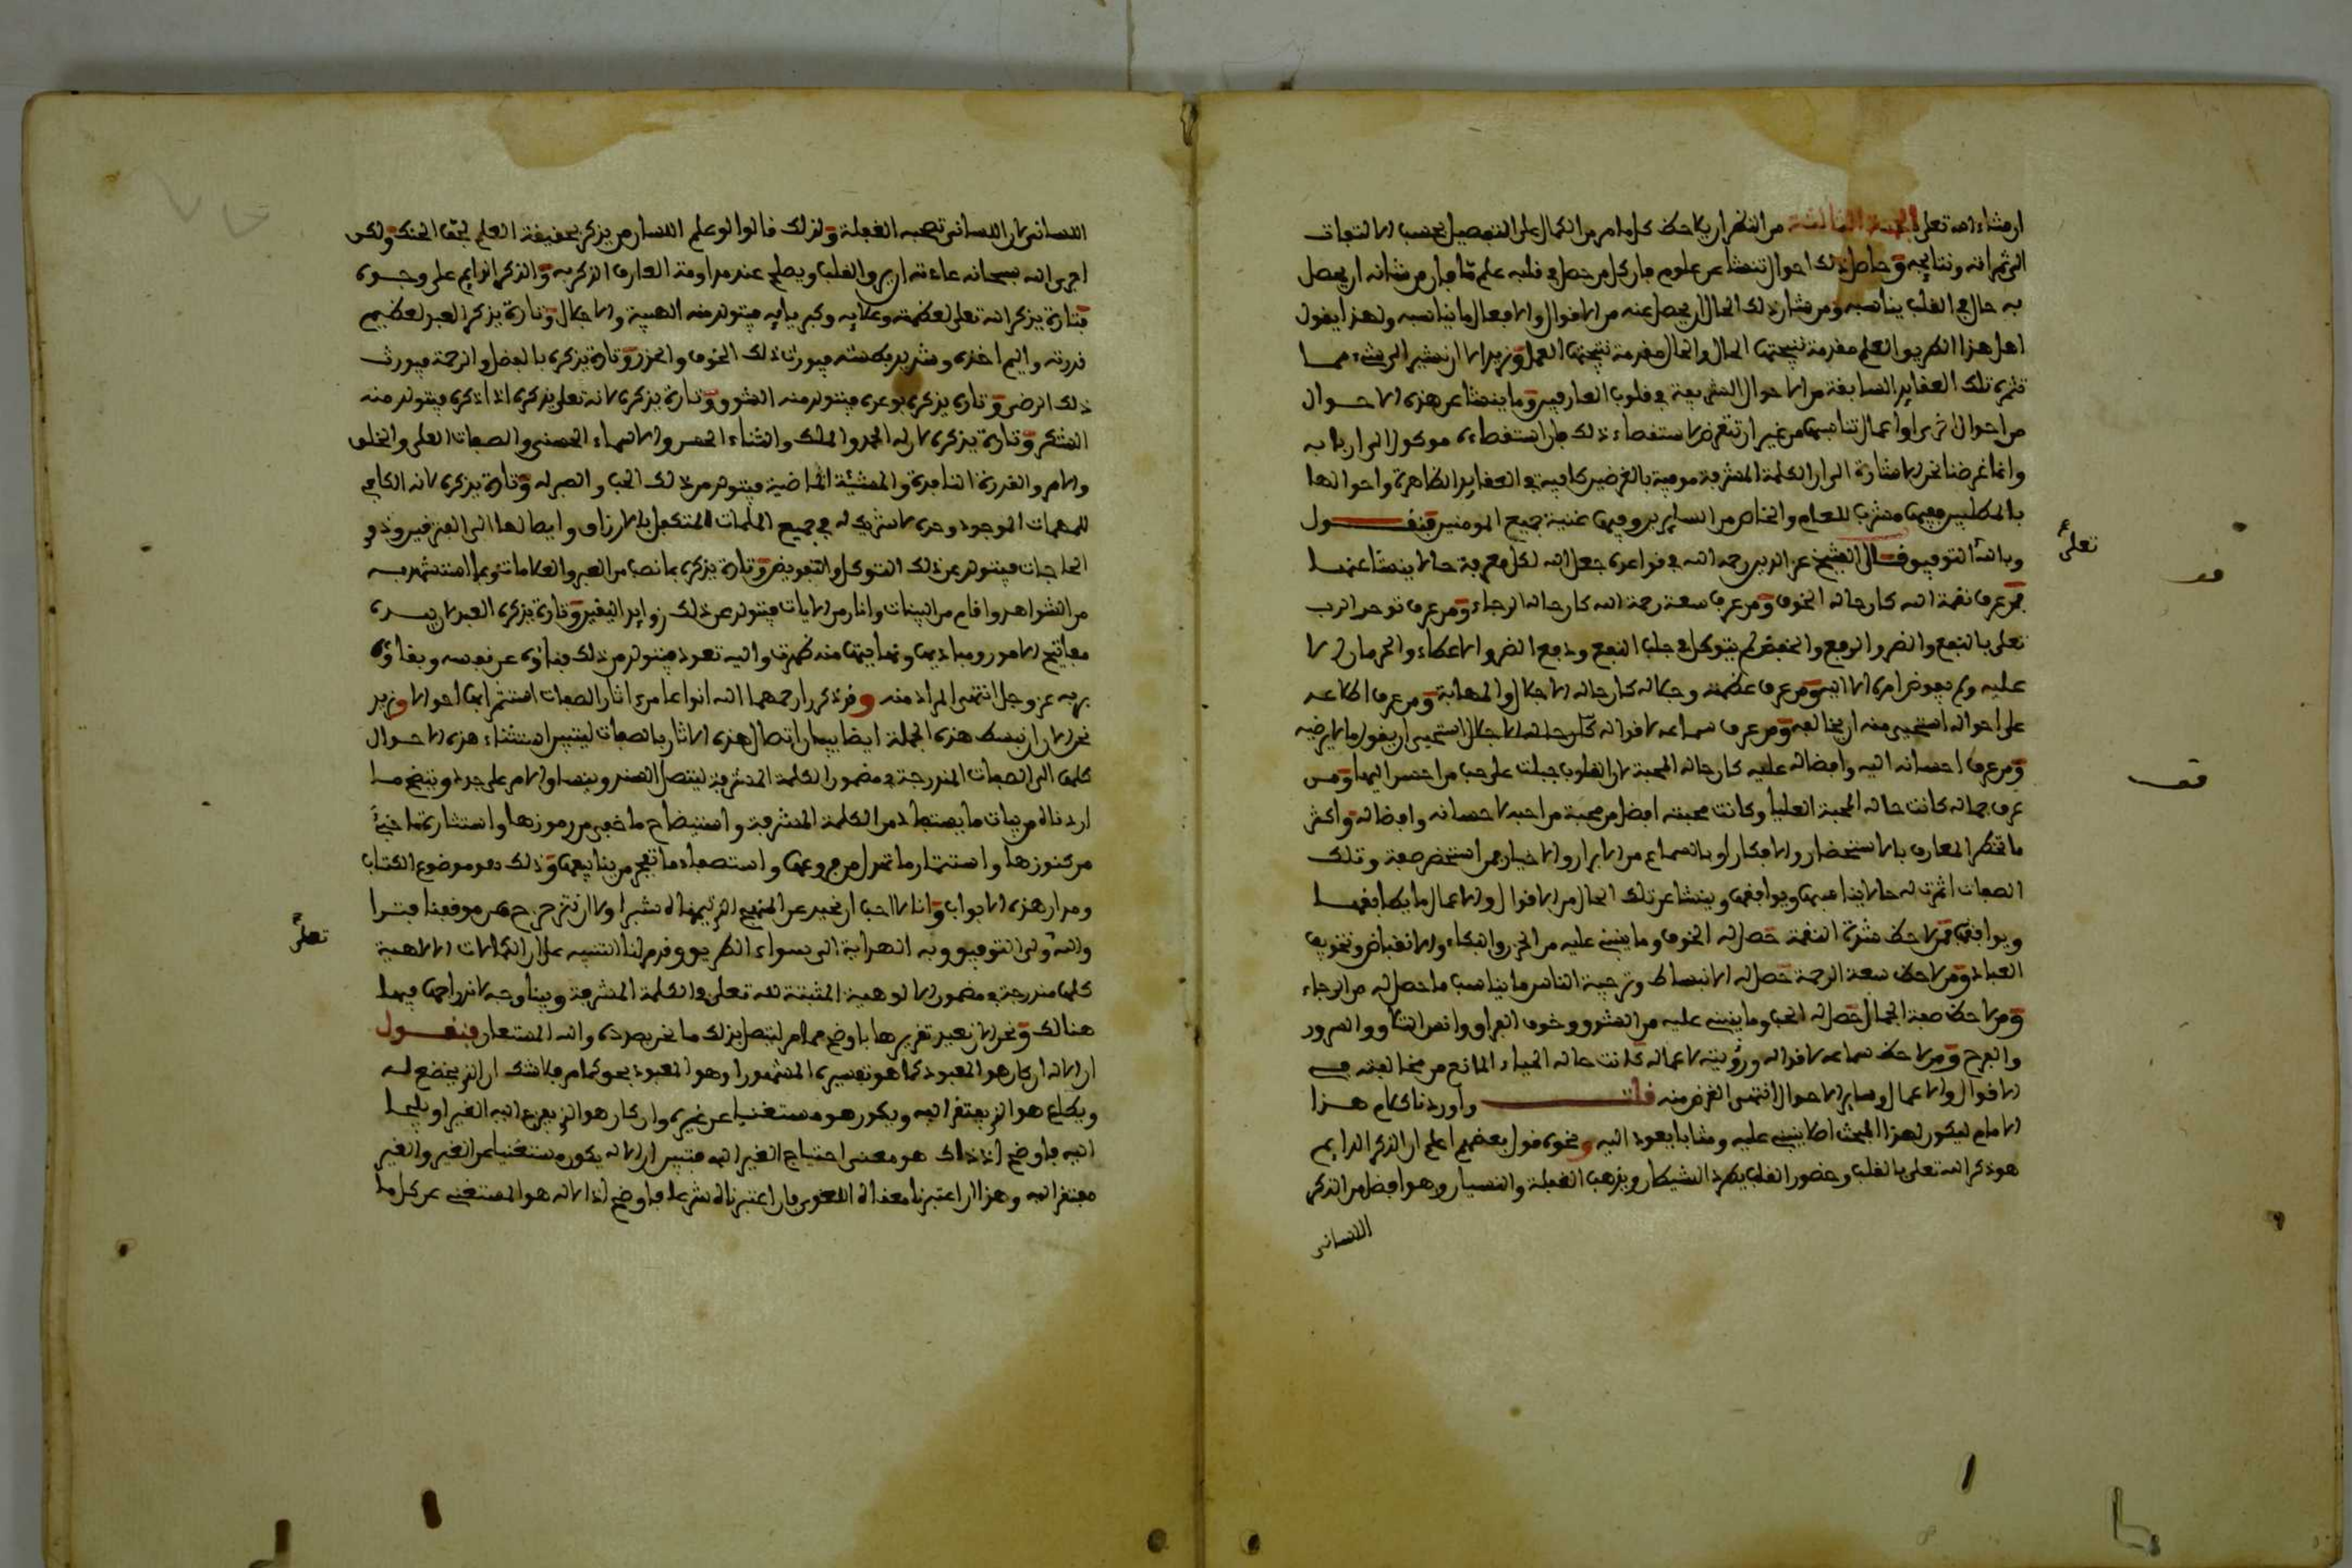 ان شاء الله تعلى الجهة الثالثة من النظر ان يلاحظ كل ما مر من الكمال على التفصيل بحسب الالتفات
الى ثمراته ونتايجه وحاصل ذلك احوال تنشا عن علوم فان كل من حصل في قلبه علم ما فان من شانه ان يحصل
به حال في القلب يناسبه ومن شان ذلك الحال ان يحصل عنه من الاقوال والافعال ما يناسبه ولهذا يقول
اهل هذا الطريق العلم مقدمة نتيجتها الحال والحال مقدمة نتيجتها العمل ونريد الان ان نشير الى شيء مما
تثمره تلك العقايد السابقة من الاحوال الشريفة في قلوب العارفين وما ينشا عن هذه الاحوال
من احوال اخرى او اعمال تناسبها من غير ان نتعرض لاستقصاء ذلك فان استقصاءه موكول الى اربابه
وانما غرضنا نحن الاشارة الى ان الكلمة المشرفة موفية بالغرضين كافية في العقايد الظاهرة واحوالها
بالمطلبين ففيها مشرب للعام والخاص من السايرين وفيها غنية جميع المومنين فنقول
وبالله التوفيق قال الشيخ عز الدين رحمه الله في قواعده جعل الله لكل معرفة حالا ينشا عنها
فمن عرف نقمة الله كان حاله الخوف ومن عرف سعة رحمة الله كان حاله الرجاء ومن عرف توحد الرب
تعلى بالنفع والضر والرفع والخفض لم يتوكل في جلب النفع ودفع الضر والاعطاء والحرمان الا
عليه ولم يفوض امره الا اليه ومن عرف عظمته وجلاله كان حاله الاجلال والمهابة ومن عرف اطلاعه
على احواله استحيى منه ان يخالفه ومن عرف سماعه لاقواله كان حاله الاجلال استحيى ان يقول ما لا يرضيه
ومن عرف احسانه اليه وافضاله عليه كان حاله المحبة لان القلوب جبلت على حب من احسن اليها ومن
عرف جماله كانت حاله المحبة العليا وكانت محبته افضل من محبة من احبه لاحسانه وافضاله واكثر
ما تحضر المعارف بالاستحضار والافكار او بالسماع من الابرار والاخيار فمن استحضر صفة وتلك
الصفات اثمرت له حالا يناسبها ويوافقها وينشا عن تلك الحال من الاقوال والاعمال ما يطابقها
ويوافقها فمن لاحظ شدة النقمة حصل له الخوف وما ينبني عليه من الحزن والبكاء والانقباض وتخويف
العباد ومن لاحظ سعة الرحمة حصل له الانبساط وترجية الناس ما يناسب ما حصل له من الرجاء
ومن لاحظ صفة الجمال حصل له الحب وما ينبني عليه من الشوق وخوف الفراق وانس التلاق والسرور
والفرح ومن لاحظ سماعه لاقواله ورؤيته لاعماله كانت حاله الحياء المانع من مخالفته في
الاقوال والاعمال وساير الاحوال انتهى الغرض منه قلت واوردنا كلام هذا
الامام ليكون لهذا المبحث اصلا ينبني عليه ومثابا يعود اليه ونحوه قول بعضهم اعلم ان الذكر الدايم
هو ذكر الله تعلى بالقلب وحضور القلب يطرد الشيطان ويذهب الغفلة والنسيان وهو افضل من الذكر
اللساني
تعلى
قف
قف
اللساني لان اللساني تصحبه الغفلة ولذلك قالوا لو علم اللسان من يذكر بحقيقة العلم لجف الحنك ولكن
اجرى الله سبحانه عادته ان يرق القلب ويصلح عند مداومة العارف الذكر به والذكر الدايم على وجوه
فتارة يذكر الله تعلى لعظمته وعلايه وكبريايه فيتولد منه الهيبة والاجلال وتارة يذكر العبد لعظيم
قدرته واليم اخذه وشديد بطشه فيورث ذلك الخوف والحزن وتارة يذكره بالفضل والرحمة فيورث
ذلك الرضى وتارة يذكره بوعده فيتولد منه الشوق وتارة يذكره لانه تعلى يذكره اذا ذكره فيتولد منه
الشكر وتارة يذكره لان له الحمد والملك والثناء الحسن والاسماء الحسنى والصفات العلى والخلق
والامر والقدرة النافذة والمشيئة الماضية فيتولد من ذلك الحب والصبر له وتارة يذكره لانه الكافي
للمهمات الموجود وحده لا شريك له في جميع الملمات المتكفل بالارزاق وايصالها الى الفقيرين وذوي
الحاجات فيتولد عن ذلك التوكل والتفويض وتارة يذكره بما نصب من العبر والعلامات وبما استشهد به
من الشواهد واقام من البينات وانار من الايات فيتولد عن ذلك زوايد اليقين وتارة يذكره العبد لان بيده
مفاتيح الامور ومباديها ونهايتها منه ظهرت واليه تعود فيتولد من ذلك فناؤه عن نفسه وبقاؤه
بربه عز وجل انتهى المراد منه وقد ذكرا رحمهما الله انواعا من اثار الصفات استثمر ابها احوالا ونريد
نحن الان ان نبسط هذه الجملة ايضا ببيان اتصال هذه الاثار بالصفات ليتبين استثناء هذه الاحوال
كلها الى الصفات المندرجة في مضمون الكلمة المشرفة ليتصل السند وينساق الامر على جدد ويتضح ما
اردناه من بيان ما يستفاد من الكلمة المشرفة واستيضاح ما خفي من رموزها واستثارة ما خبئ
من كنوزها واستثمار ما تهدل من فروعها واستصفاء ما تفجر من ينابيعها وذلك هو موضوع الكتاب
ومدار هذه الابواب وانا لا احب ان نحيد عن المنهيع الذي نهيناه شبرا ولا ان نتزحزح عن موقفنا فترا
والله ولي التوفيق وبه الهداية الى سواء الطريق وقد مر لنا التنبيه على ان الكمالات الالاهية
كلها مندرجة في مضمون الالوهية المثبتة لله تعلى في الكلمة المشرفة وبينا وجه اندراجها فيها
هنالك ونحن الان نعيد تقريرها باوضح مما مر ليتصل بذلك ما نحن بصدده والله المستعان فنقول
ان الاله ان كان هو المعبود كما هو تفسيره المشهور او هو المعبود بحق كما مر فلا شك ان الذي يخضع له
ويطاع هو الذي يفتقر اليه ويكون هو مستغنيا عن غيره وان كان هو الذي يفزع اليه الغير او يلجا
اليه فاوضح اذ ذاك هو معنى احتياج الغير اليه فتبين ان الاله يكون مستغنيا عن الغير والغير
مفتقر اليه وهذا ان اعتبرنا معناه اللغوي فان اعتبرناه شرعا فاوضح اذ الاله هو المستغني عن كل ما
تعلى